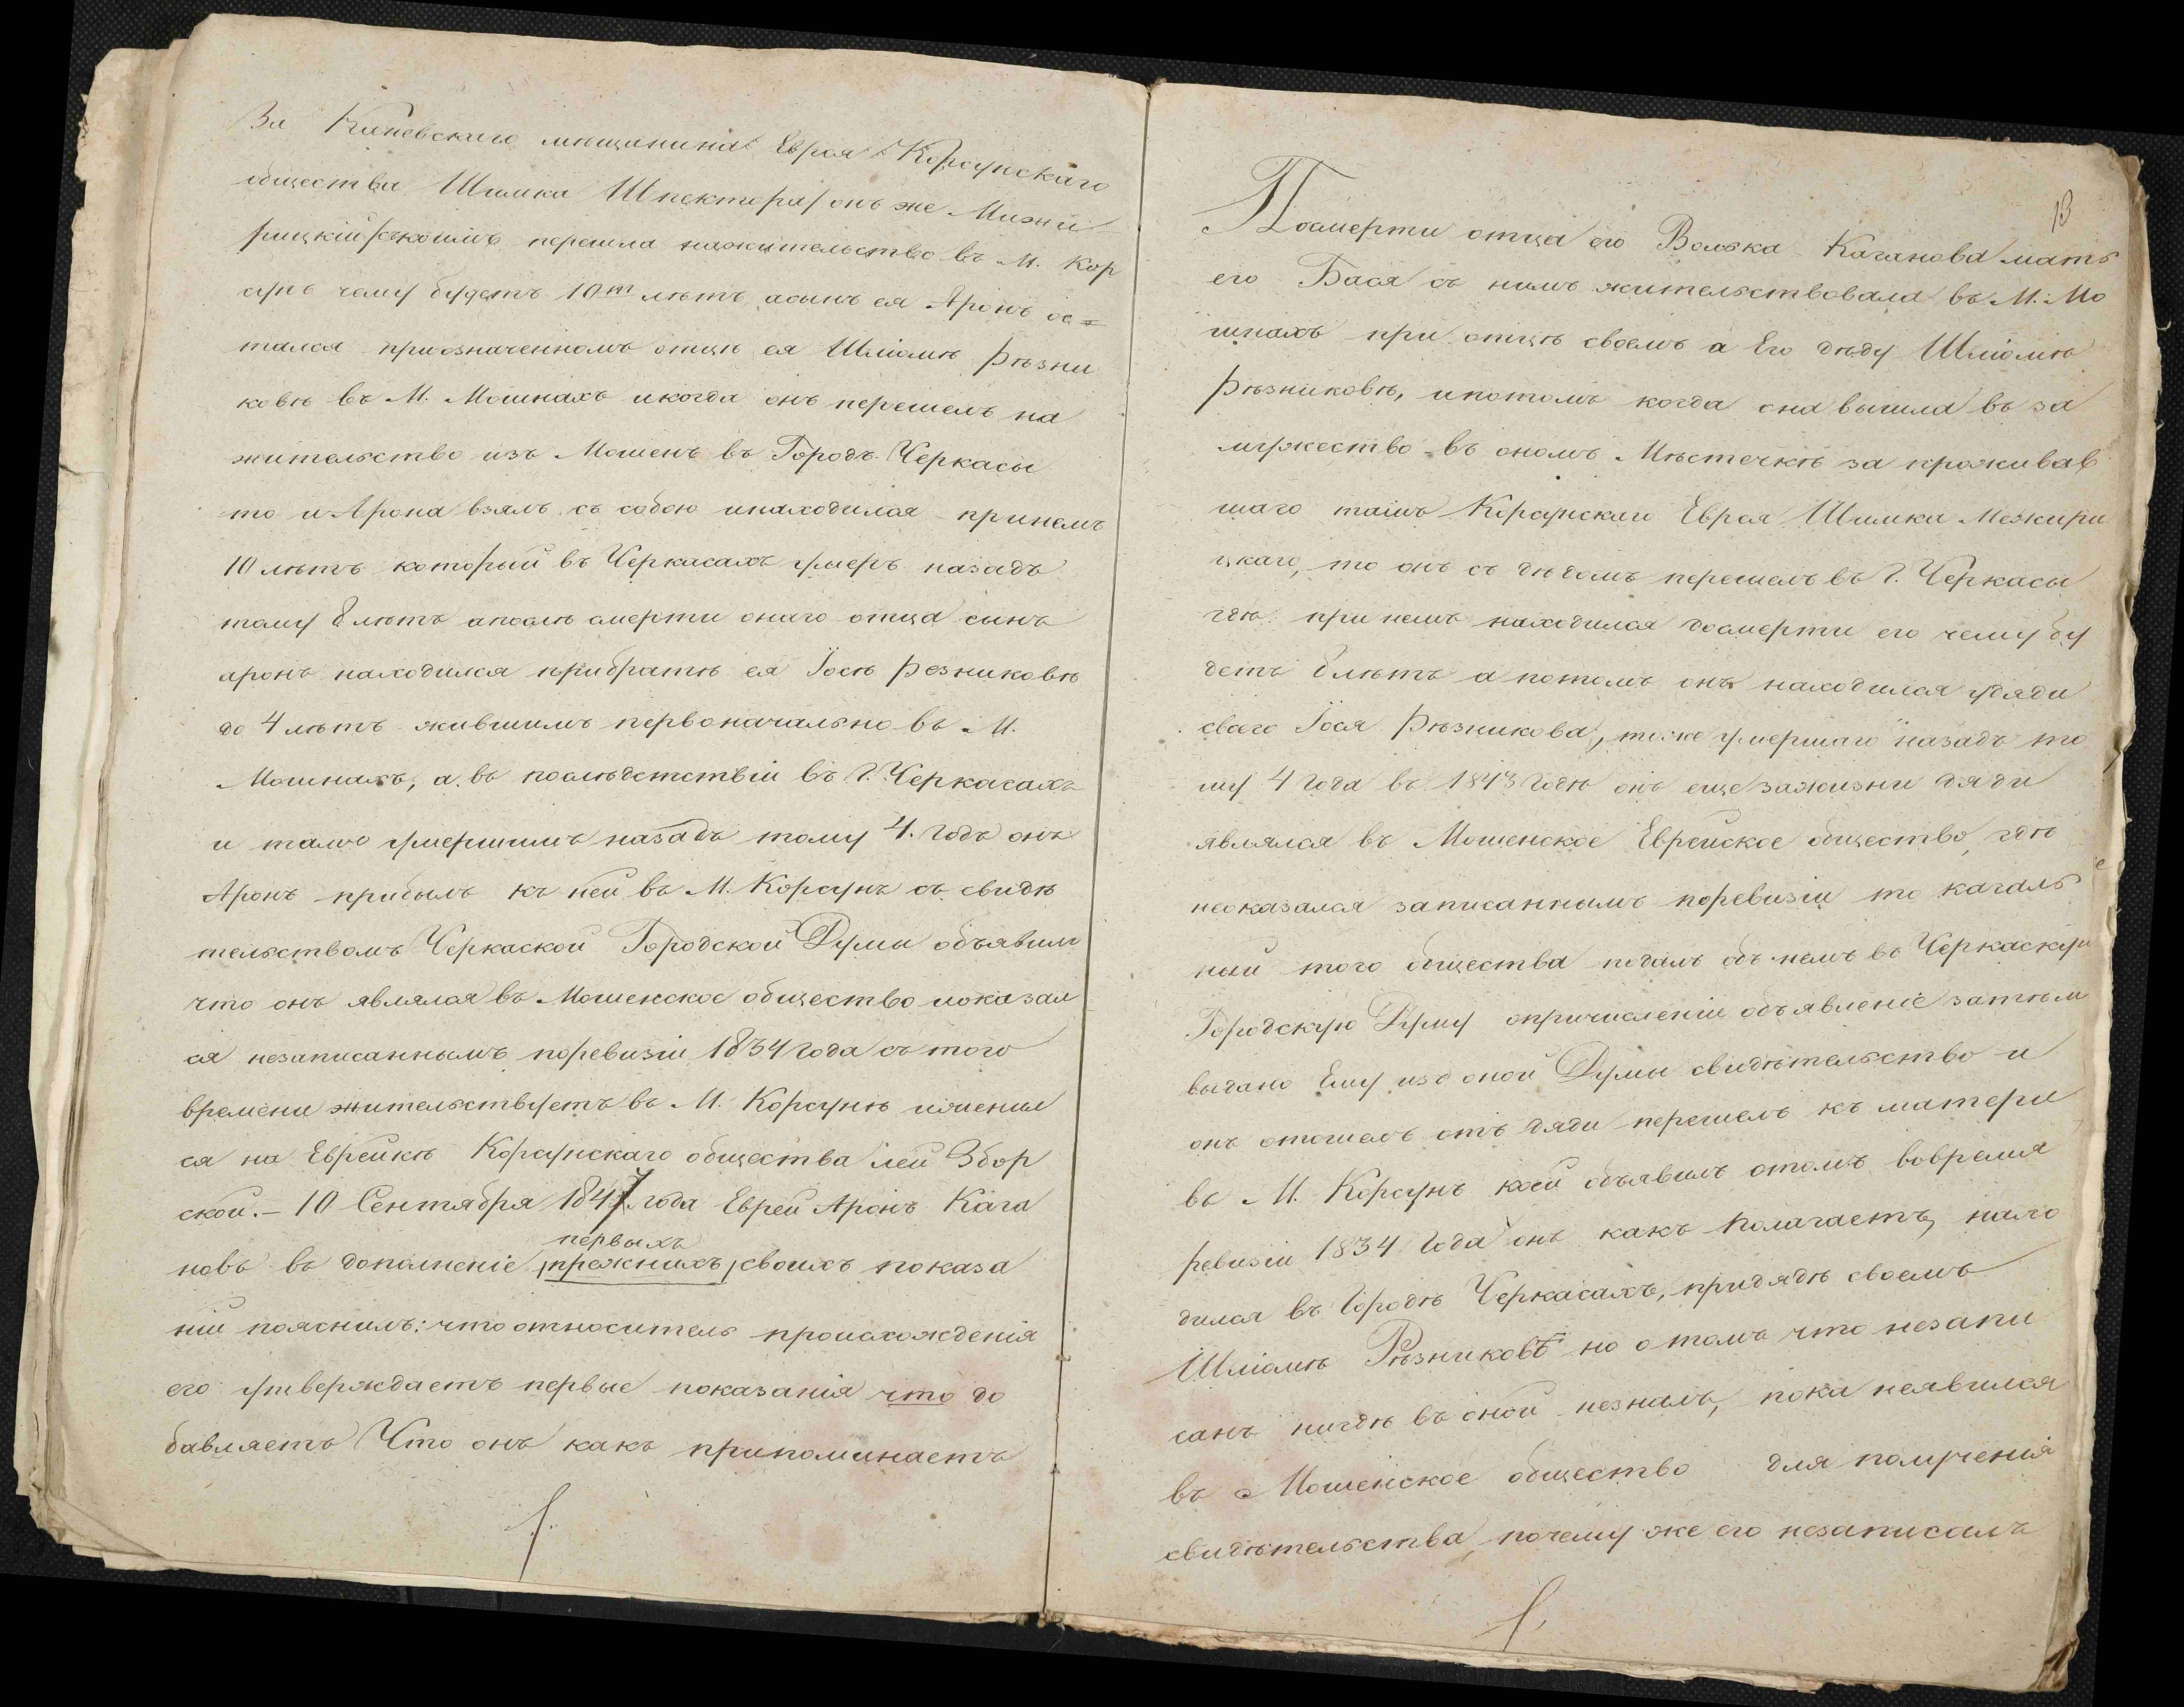 За Каневскаго мещанина Еврея Корсунскаго
общества Шимка Шпектера/ онъ же Межи
рицкій/ съкоимъ перешла нажительство въ М. Кор
сунь чему будетъ 10ть лѣтъ, асынъ ея Аронъ ос=
тался приозначенномъ отцѣ ея Шліомѣ Рѣзни
ковѣ въ М. Мошнахъ икогда онъ перешелъ на
жительство изъ Мошенъ въ Городъ Черкасы
то и Арона взялъ съ собою инаходился принемъ
10 лѣтъ который въ Черкасахъ умеръ назадъ
тому 8 лѣтъ апослѣ смерти онаго отца сынъ
аронъ находился прибратѣ ея Іосѣ Резниковѣ
до 4 лѣтъ жившимъ первоначально въ М.
Мошнахъ, а въ послѣдстствіи въ Г. Черкасахъ
и тамо умершимъ назадъ тому 4. годъ онъ
Аронъ прибылъ къ ней въ М. Корсунъ съ свидѣ
тельствомъ Черкаской Городской Думы объявилъ
что онъ являлся въ Мошенское общество иоказал
ся незаписаннымъ поревизіи 1834 года съ того
времени жительствуетъ въ М. Корсунѣ иженил
ся на Еврейкѣ Корсунскаго общества Леи Збор
ской. – 10 Сентября 1847 года Еврей Аронъ Кага
первыхъ
новъ въ дополненіе прежнихъ своихъ показа
ній пояснилъ: что относитель происхожденія
его утверждаетъ первые показанія что до
бавляетъ Что онъ какъ припоминаетъ
13
Посмерти отца его Волька Каганова мать
его Бася съ нимъ жительствовала въ М. Мо
шнахъ при отцѣ своемъ а Его дѣду Шліомѣ
Рѣзниковѣ, ипотомъ когда она вышла въ за
мужество въ ономъ Мѣстечкѣ за проживав
шаго тамъ Корсунскаго Еврея Шимка Межири
цкаго, то онъ съ дѣдомъ перешелъ въ Г. Черкасы
гдѣ при немъ находился досмерти его чему бу
детъ 8 лѣтъ а потомъ онъ находился удяди
своего Іося Рѣзникова, тоже умершаго назадъ то
му 4 года въ 1843 годѣ онъ еще зажизни дяди
являлся въ Мошенское Еврейское общество, гдѣ
неоказался записаннымъ поревизіи то кагаль
ный того общества подалъ объ немъ въ Черкаскую
Городскую Думу опричисленіи объявленіе затѣм
выдано Ему изъ оной Думы свидѣтельство и
онъ отошелъ отъ дяди перешелъ къ матери
въ М. Корсунъ коей объявилъ отомъ вовремя
ревизіи 1834 Года онъ какъ полагаетъ, нахо
дился въ Городѣ Черкасахъ, придядѣ своемъ
Шліомѣ Рѣзниковѣ но о томъ что незапи
санъ нигдѣ въ оной незналъ, пока неявился
въ Мошенское общество для полученія
свидѣтельства, почему же его незаписалъ